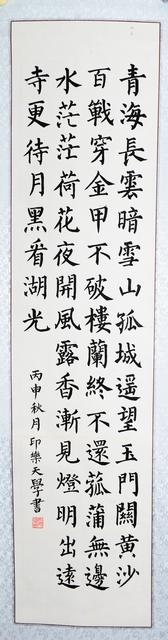 青海長雲暗雪山孤城遥望玉門關黄沙
百戰穿金甲不破樓蘭終不還菰蒲無邊
水茫茫荷花夜開風露香漸見燈明出遠
寺更待月黑看湖光
丙申秋月印樂天學書